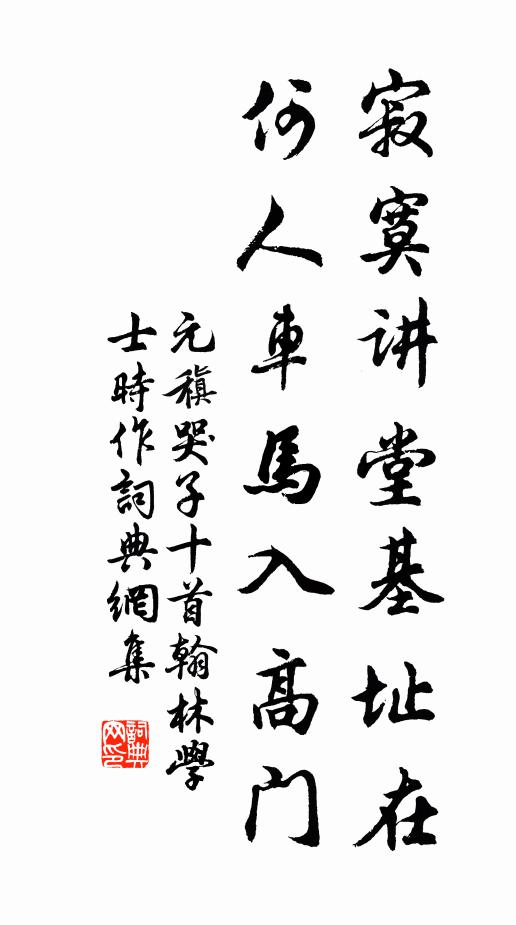 寂寞讲堂基址在
何人車馬入高門
元稹哭子十首翰林學
士時作詞典網集
詞典
网印